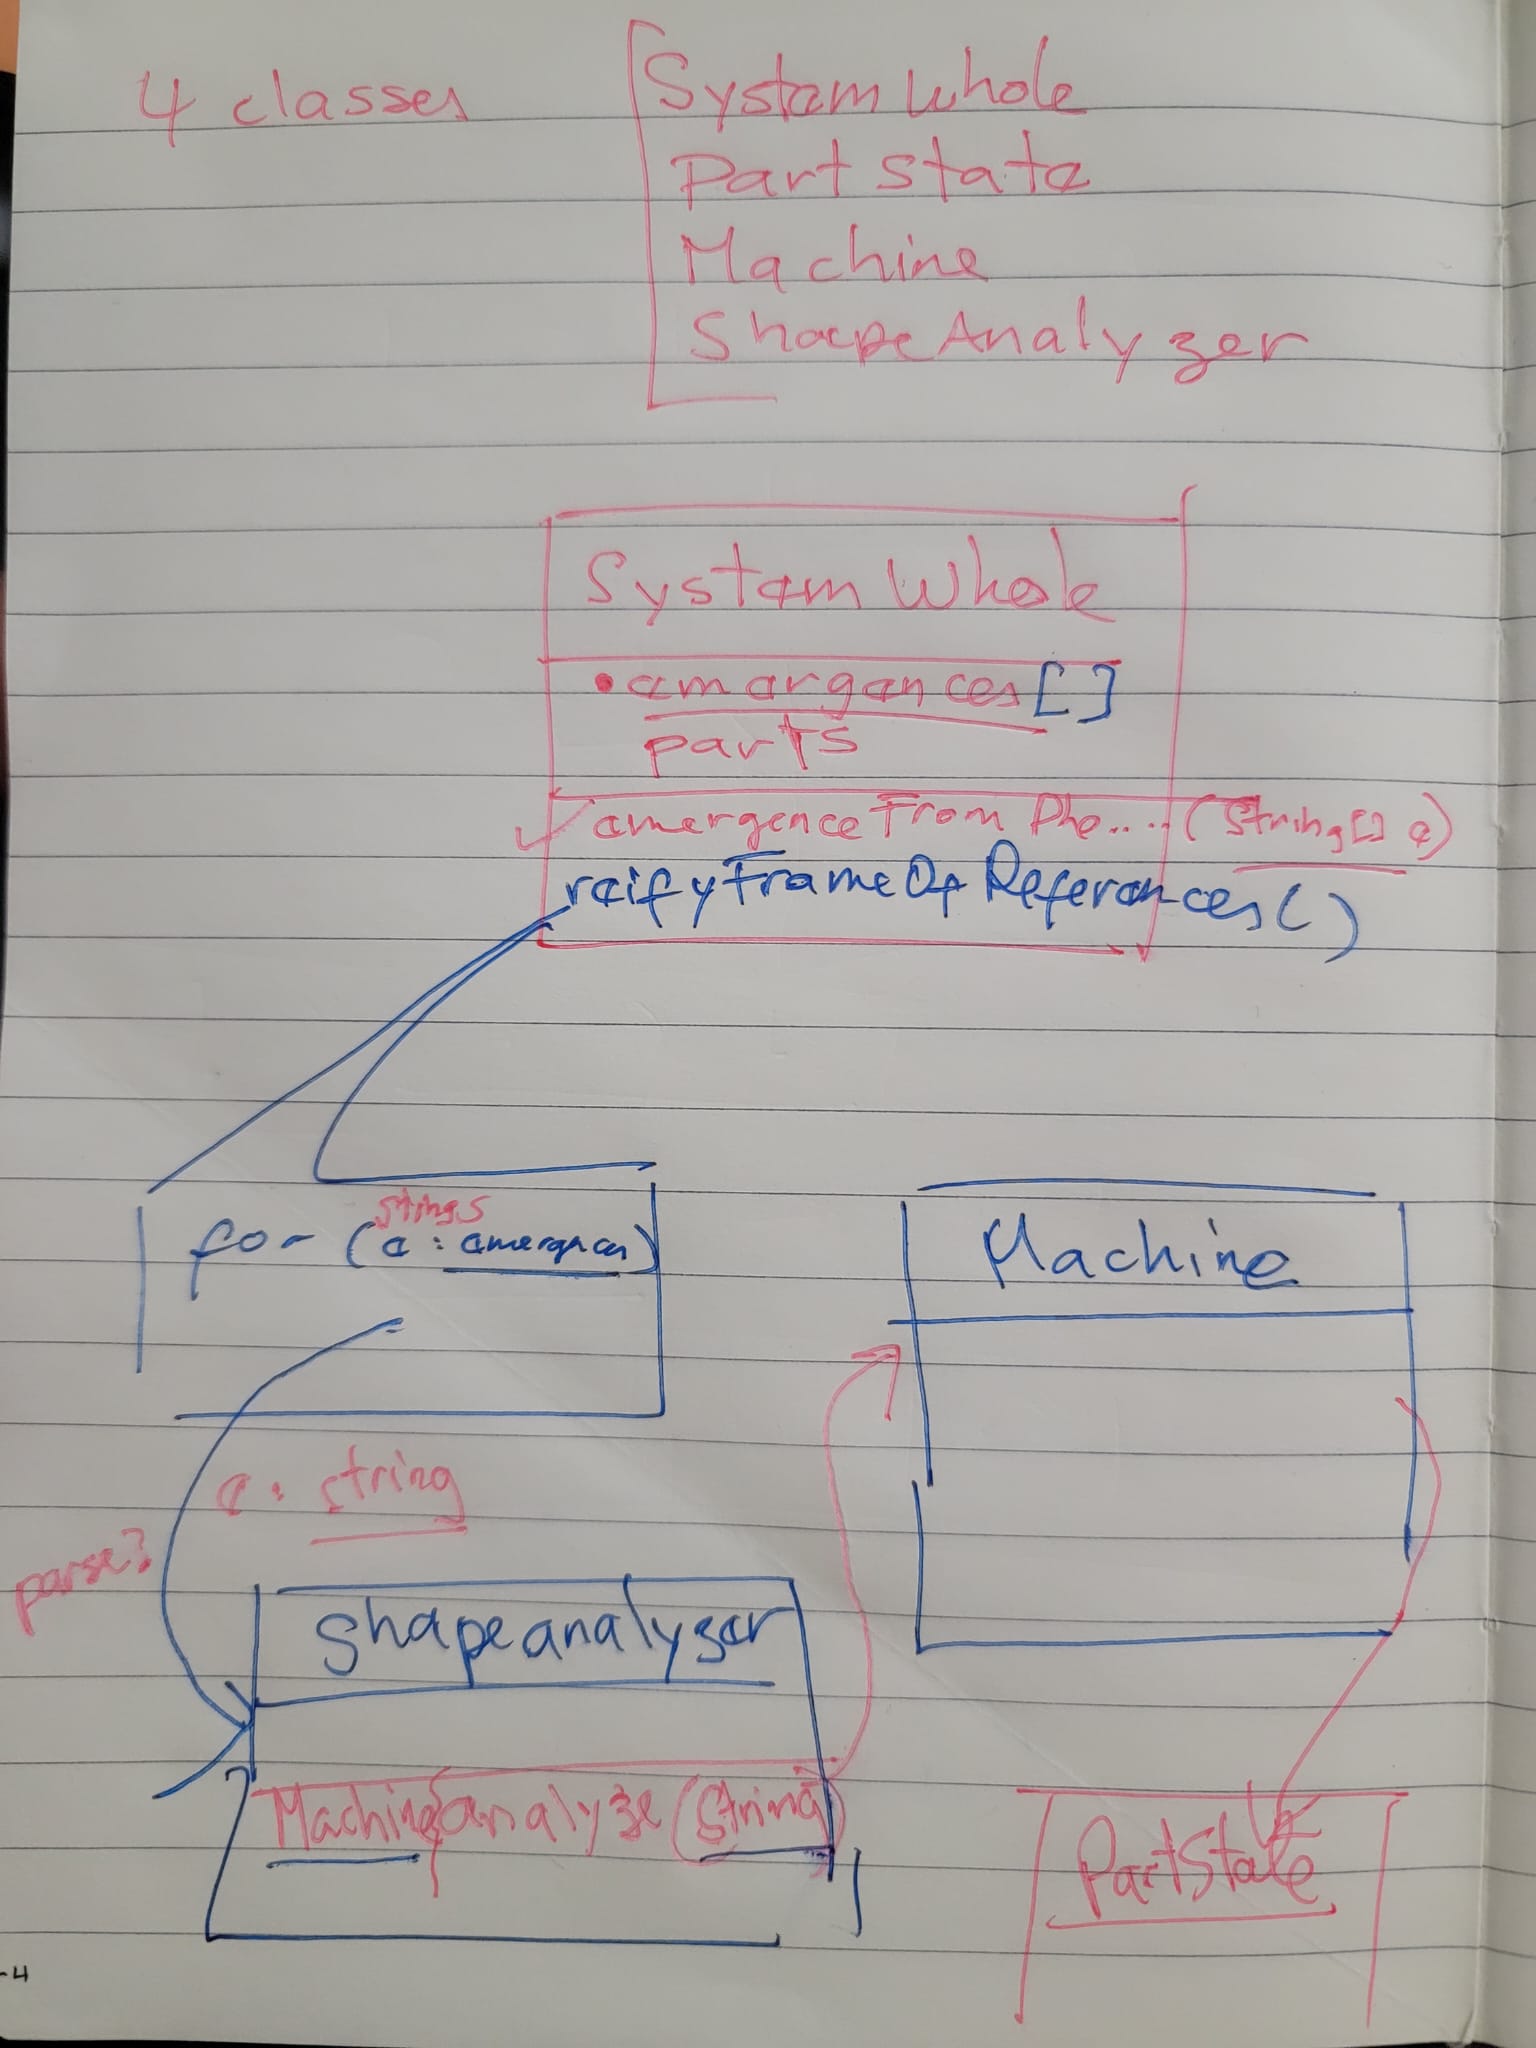 4 classes
SystemWhole
PartState
Machine
ShapeAnalyzer
SystemWhole
• emergences[]
parts
emergenceFromPhe....(String[] e)
reifyFrameOfReferences()
strings
for (e : emergences)
Machine
e: string
parse?
shapeanalyzer
Machine analyze(String)
PartState
-4